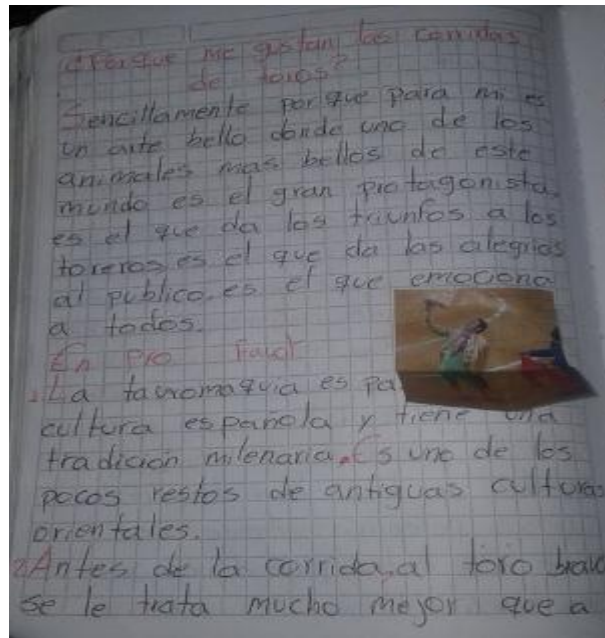 ¿Porque me gustan las corridas
de toros?
Sencillamente porque para mi es
un arte bello donde uno de los
animales mas bellos de este
mundo es el gran protagonista,
es el que da los triunfos a los
toreros, es el que da las alegrias
al publico, es el que emociona
a todos.
En pro favor
1. La tauromaquia es pa
cultura española y tiene una
tradicion milenaria. Es uno de los
pocos restos de antiguas culturas
orientales.
2 Antes de la corrida, al toro bravo
se le trata mucho mejor que a